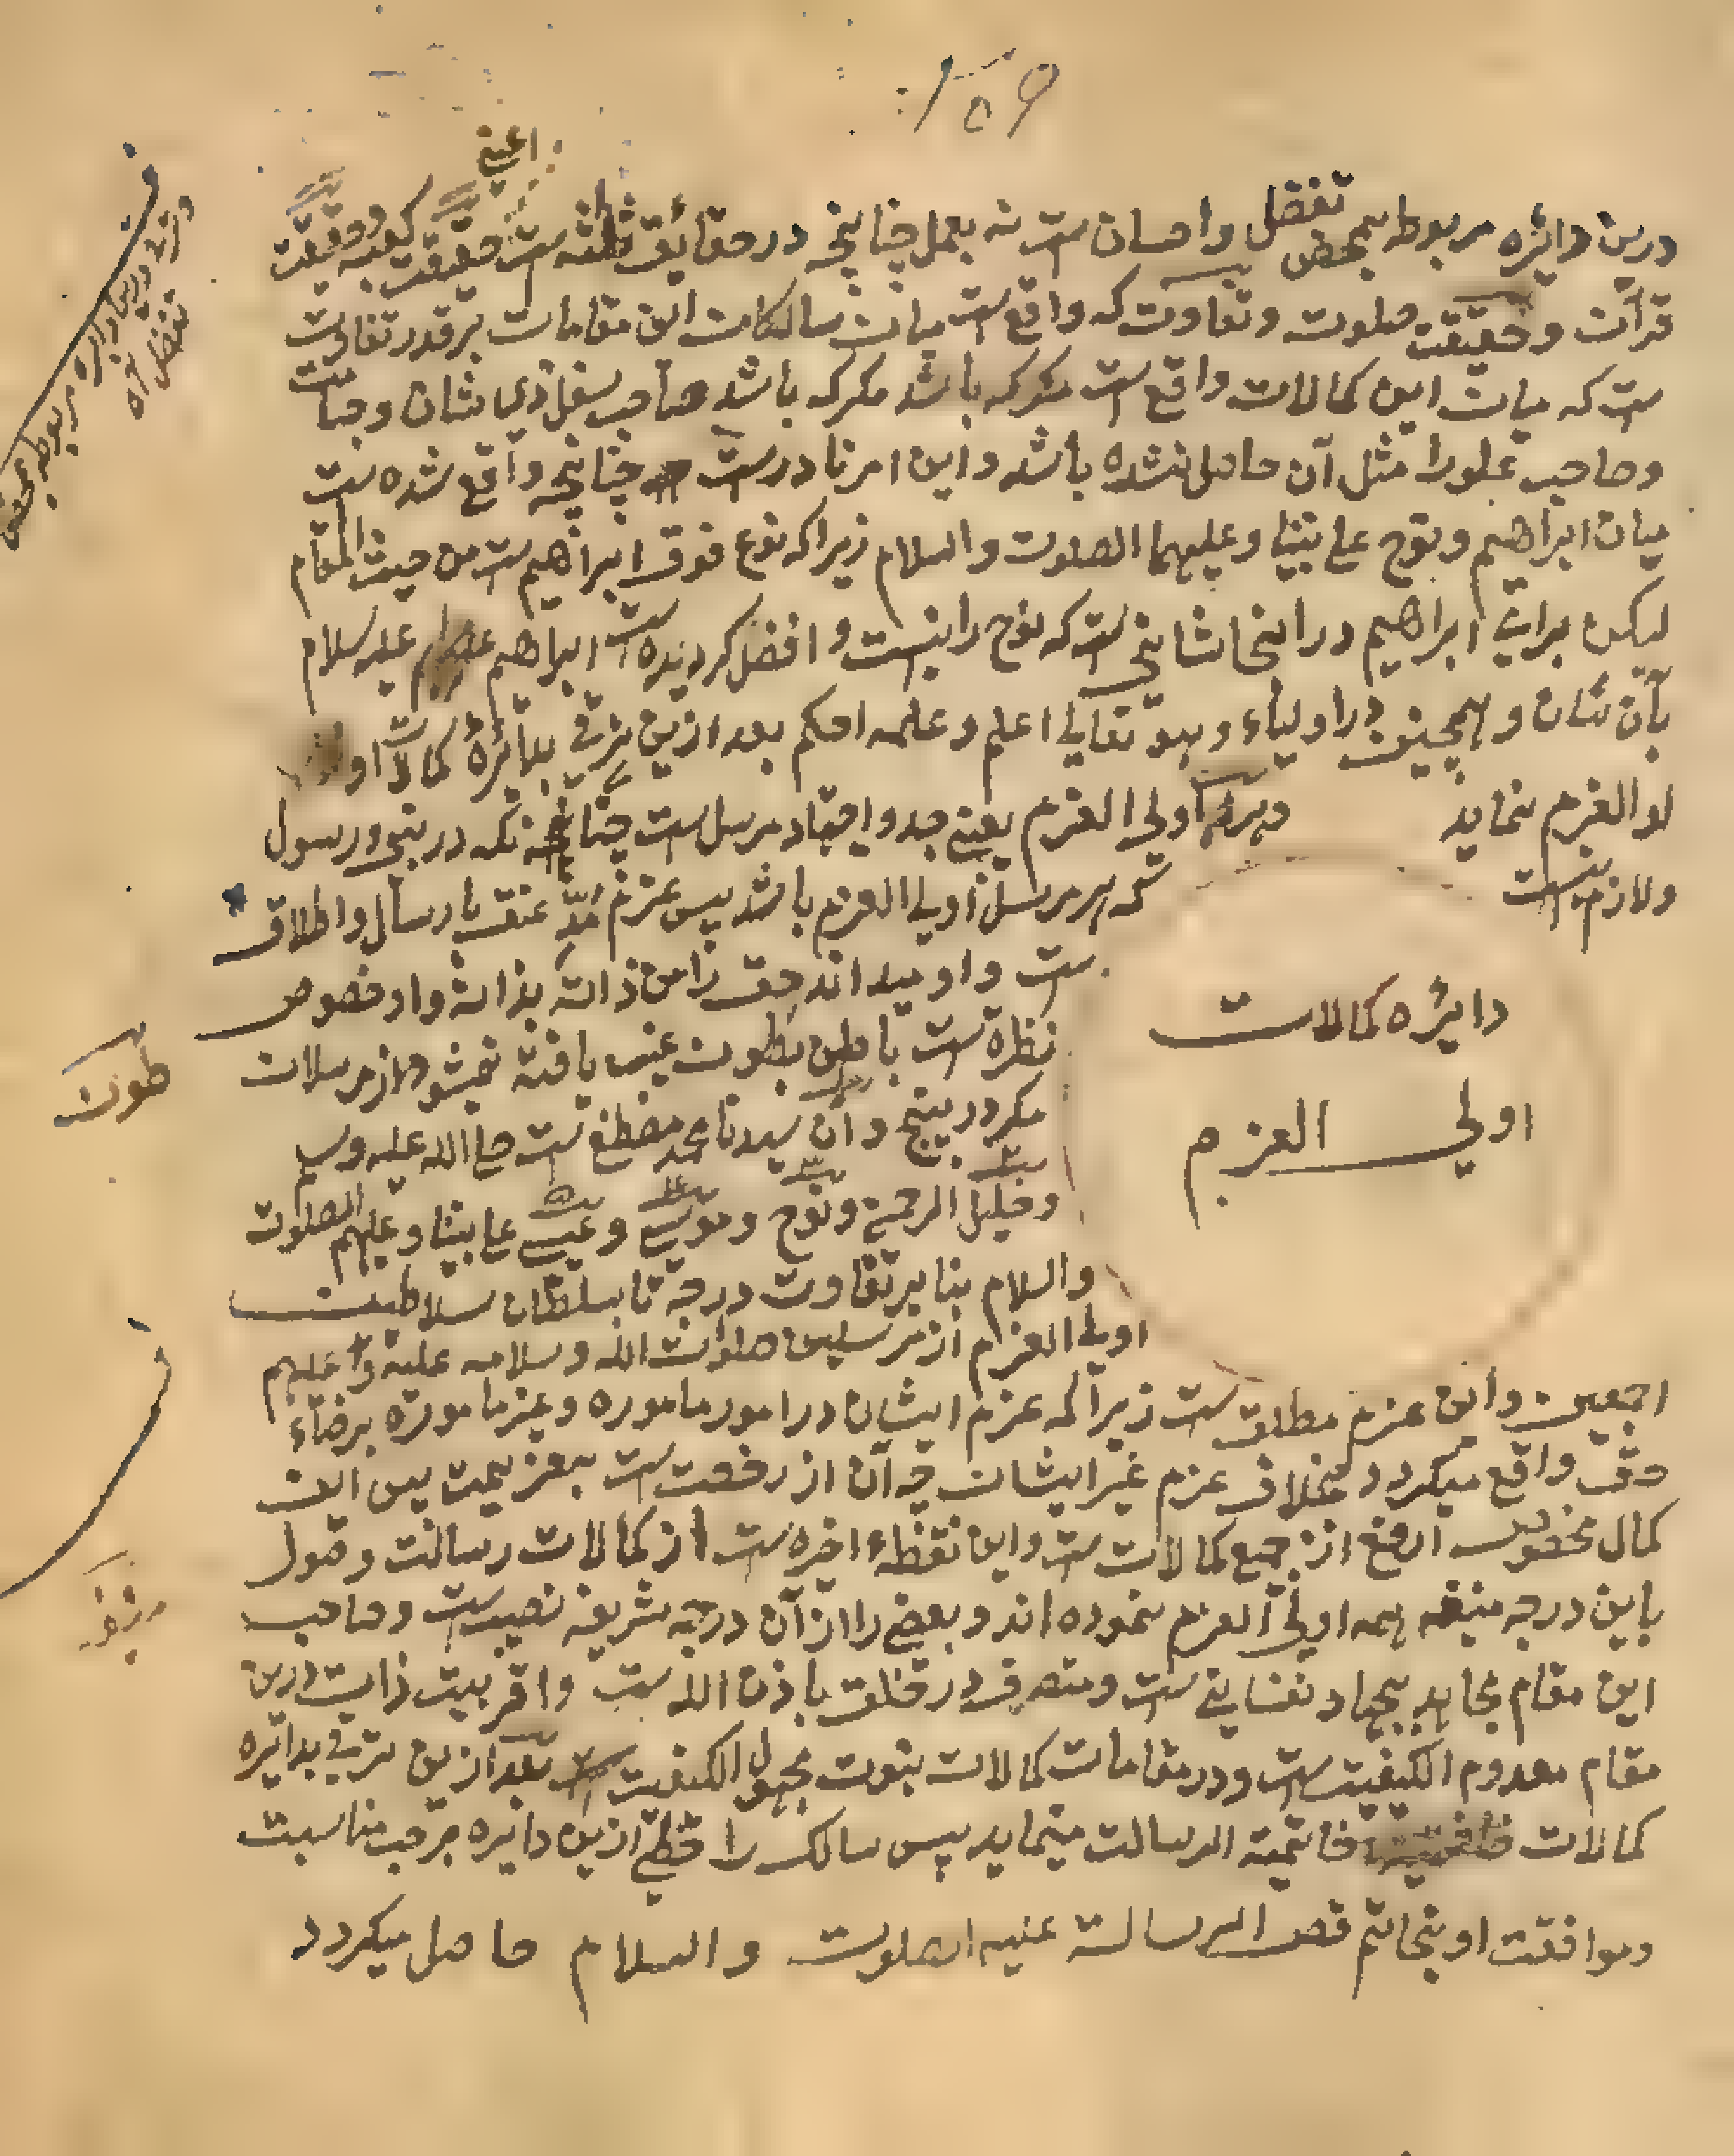 ۱۵۹
اعنی
درین دایره مربوط بمحض تفضل و احسان ست نه بعمل چنانچه در حقایق ثلثه ست حقیقت کعبه و حقیقت
قرآن و حقیقت صلوت و تفاوت که واقع ست میان سالکان این مقامات بر قدر تفاوت
ست که میان این کمالات واقع ست مکرکه باشد مکرکه باشد صاحب سفل ذی شان و جناب
وصاحب علورا مثل آن حاصل نشده باشد و این امر نادرست چنانچه واقع شده ست
میان ابراهیم و نوح علی نبینا و علیهما الصلوت والسلام زیراکه نوح فوق ابراهیم ست من حیث المقام
لیکن برای ابراهیم در انجا شانی ست که نوح را نیست و افضل کردیده ست ابراهیم علیه سلام
بآن شان و همچنین در اولیاء و هو تعالی اعلم و علمه احکم بعد ازین ترقی بدائرهٔ کمالات
لو العزم نماید
دایره کمالات
اولی العزم
اولی العزم یعنی جد و اجتهاد مرسل ست چنانکه در بنی و رسول
ولازم نیست که هر مرسل اولی العزم باشد پس عزم بارسال و اطلاق
ست و او میداند حق را من ذاته بذاته و از خصوص
نظرهٔ ست باطن بطون غیب یافته نمیشود از مرسلان
مکر در پنج و آن سیدنا محمد مصطفی ست صلی الله علیه وسلم
و خلیل الرحمن و نوح و موسی و عیسی علی نبینا و علیهم الصلوت
والسلام بنا بر تفاوت درجه تا بسلطان سلاطین
اولی العزم از مرسلین صلوات الله و سلامه علیه و علیهم
اجمعین و این عزم مطلق ست زیراکه عزم ایشان در امور ماموره و غیر ماموره برضاء
حق واقع میکردد بخلاف عزم غیر ایشان چه آن از رخصت ست بعزیمت پس این
کمال مخصوص ارفع از جمیع کمالات ست و این نقطهء اخیره ست از کمالات رسالت وصول
باین درجه منیفه همه اولی العزم نموده اند و بعضی را از آن درجه شریفه نصیب ست و صاحب
این مقام مجاهد بجهاد نفسانی ست و متصرف در خلق باذن الله ست و اقربیت ذات درین
مقام معدوم الکیفیت ست و در مقامات کمالات نبوت مجهول الکیفیت ست بعد ازین ترقی بدائره
کمالات خاتمیة الرسالت مینماید پس سالک را حظی ازین دایره بر حسب مناسبت
وموافقت او بخاتم فص الرسالة علیه الصلوت والسلام حاصل میکردد
درین دایره مربوط بمحض
تفضل
طون
منیفه